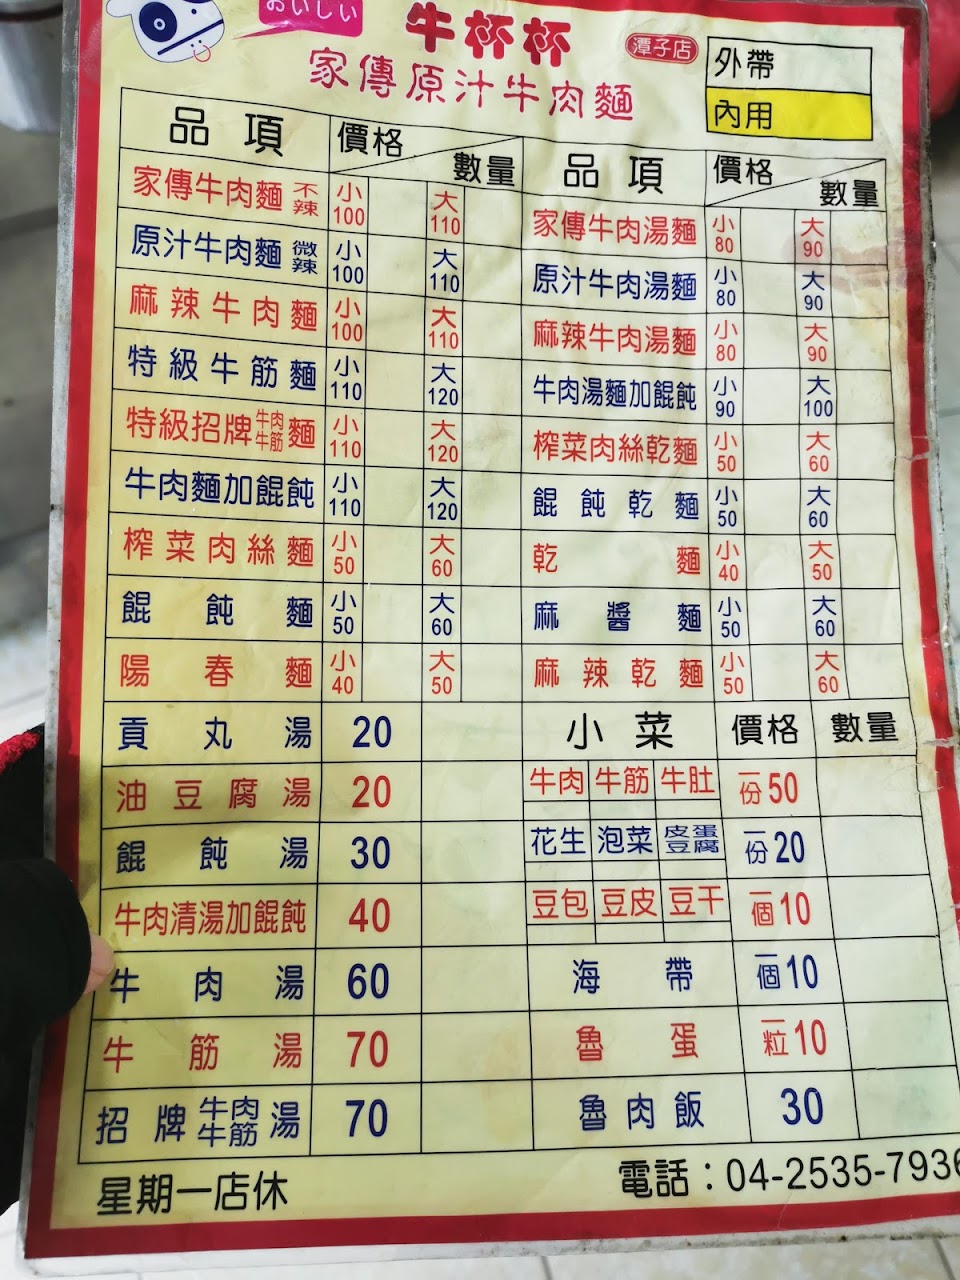 おいしい
牛杯杯
潭子店
家傳原汁牛肉麵
外帶
內用
品項 價格 數量 品項 價格 數量
家傳牛肉麵 不辣 小100 大110 家傳牛肉湯麵 小80 大90
原汁牛肉麵 微辣 小100 大110 原汁牛肉湯麵 小80 大90
麻辣牛肉麵 小100 大110 麻辣牛肉湯麵 小80 大90
特級牛筋麵 小110 大120 牛肉湯麵加餛飩 小90 大100
特級招牌牛肉牛筋麵 小110 大120 榨菜肉絲乾麵 小50 大60
牛肉麵加餛飩 小110 大120 餛飩乾麵 小50 大60
榨菜肉絲麵 小50 大60 乾麵 小40 大50
餛飩麵 小50 大60 麻醬麵 小50 大60
陽春麵 小40 大50 麻辣乾麵 小50 大60
貢丸湯 20 小菜 價格 數量
油豆腐湯 20 牛肉 牛筋 牛肚 一份50
餛飩湯 30 花生 泡菜 皮蛋豆腐 一份20
牛肉清湯加餛飩 40 豆包 豆皮 豆干 一個10
牛肉湯 60 海帶 一個10
牛筋湯 70 魯蛋 一粒10
招牌牛肉牛筋湯 70 魯肉飯 30
星期一店休 電話：04-2535-7936